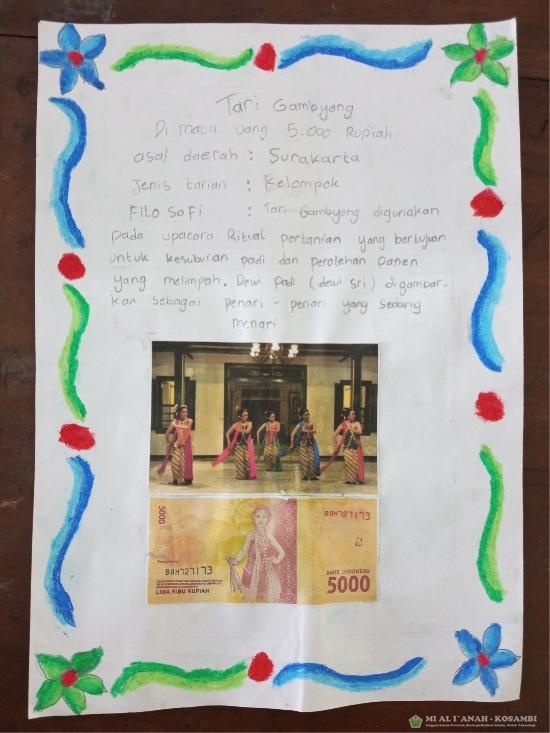 Tari Gambyong
Di mata uang 5.000 Rupiah
asal daerah : Surakarta
Jenis tarian : Kelompok
FiLo SoFi : Tari Gambyong digunakan
pada upacara Ritual pertanian yang bertujuan
untuk kesuburan padi dan perolehan panen
yang melimpah. Dewi padi (dewi sri) digambar-
kan sebagai penari - penari yang sedang
menari
5000
BAH727173
BAH727173
LIMA RIBU RUPIAH
BANK INDONESIA
5000
MI AL I'ANAH - KOSAMBI